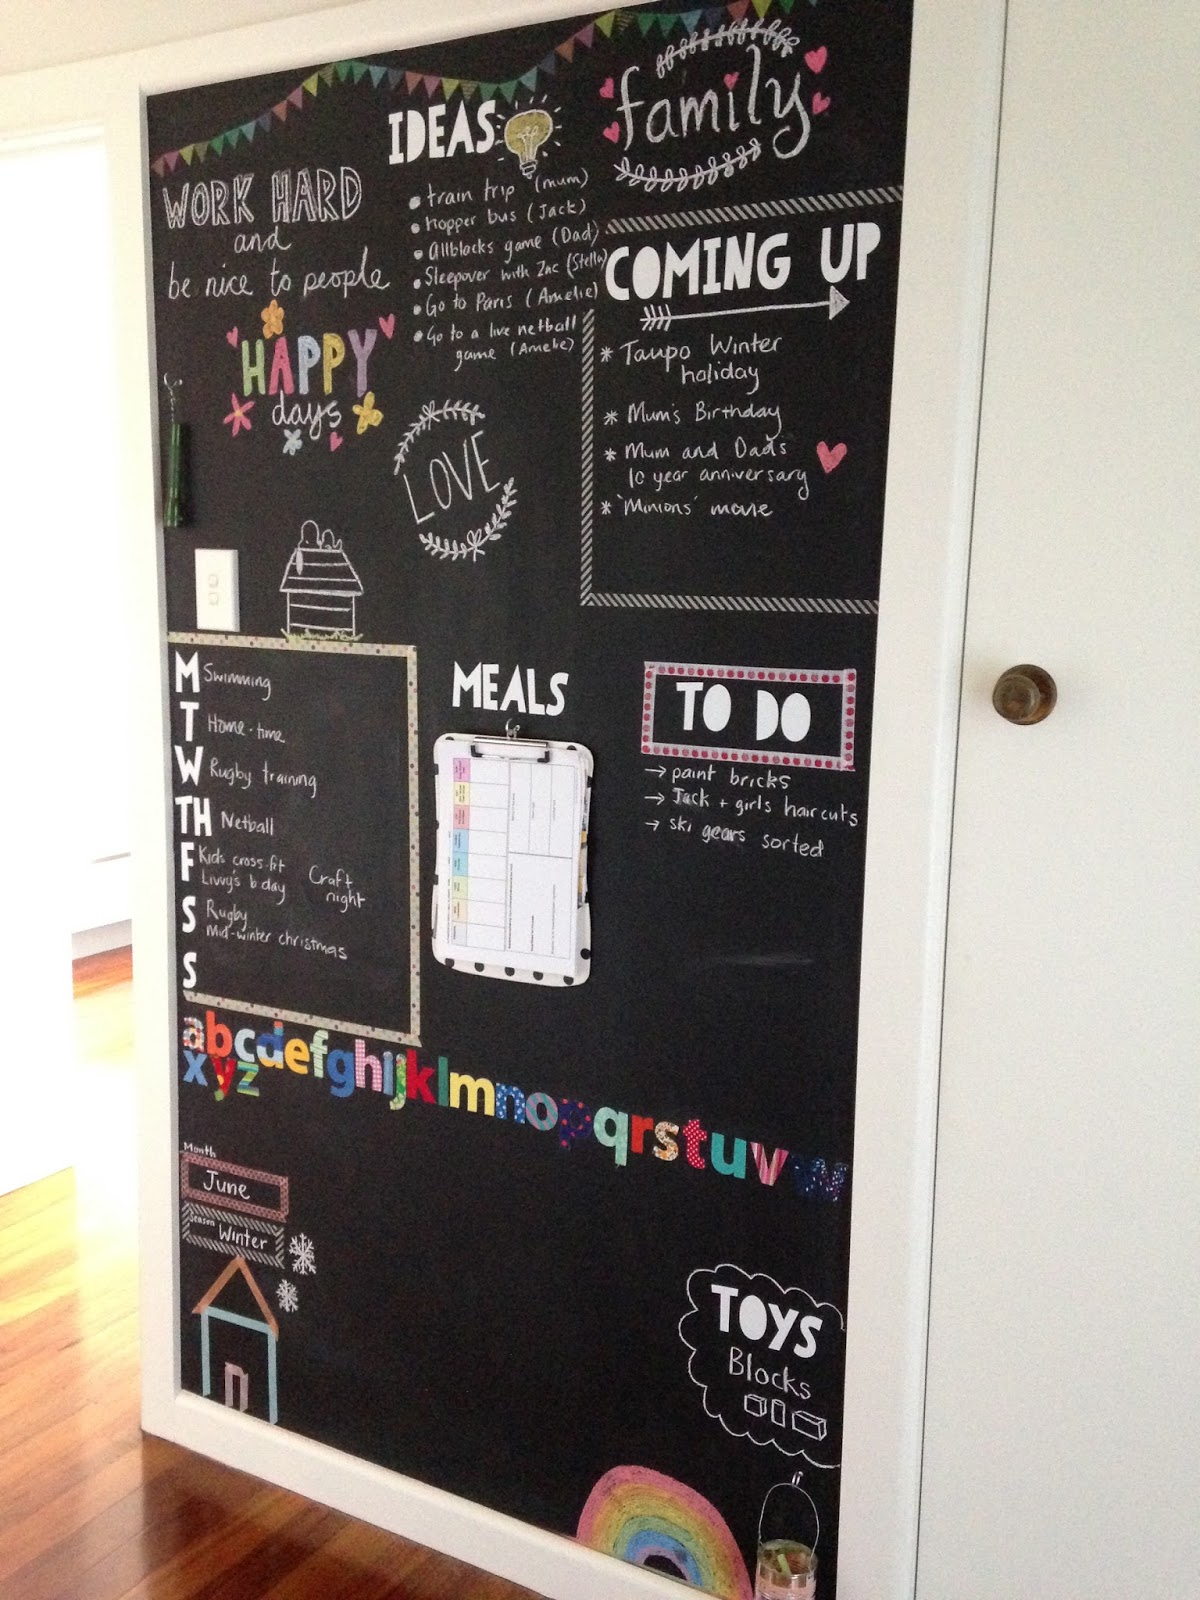 family
IDEAS
WORK HARD
and
be nice to people
train trip (mum)
hopper bus (Jack)
Allblacks game (Dad)
Sleepover with Zac (Stella)
Go to Paris (Amelie)
Go to a live netball
game (Amelie)
COMING UP
* Taupo Winter
holiday
* Mum's Birthday
* Mum and Dads
10 year anniversary
* 'Minions' movie
HAPPY
days
LOVE
M Swimming
T Home-time
W Rugby training
TH Netball
F Kids cross-fit
Livvy's b day
Craft
night
S Rugby
Mid-winter christmas
S
MEALS
TO DO
→ paint bricks
→ Jack + girls haircuts
→ ski gears sorted
abcdefghijklmnopqrstuvw
xyz
Month
June
Season
Winter
TOYS
Blocks